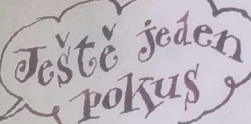 Ještě jeden
pokus